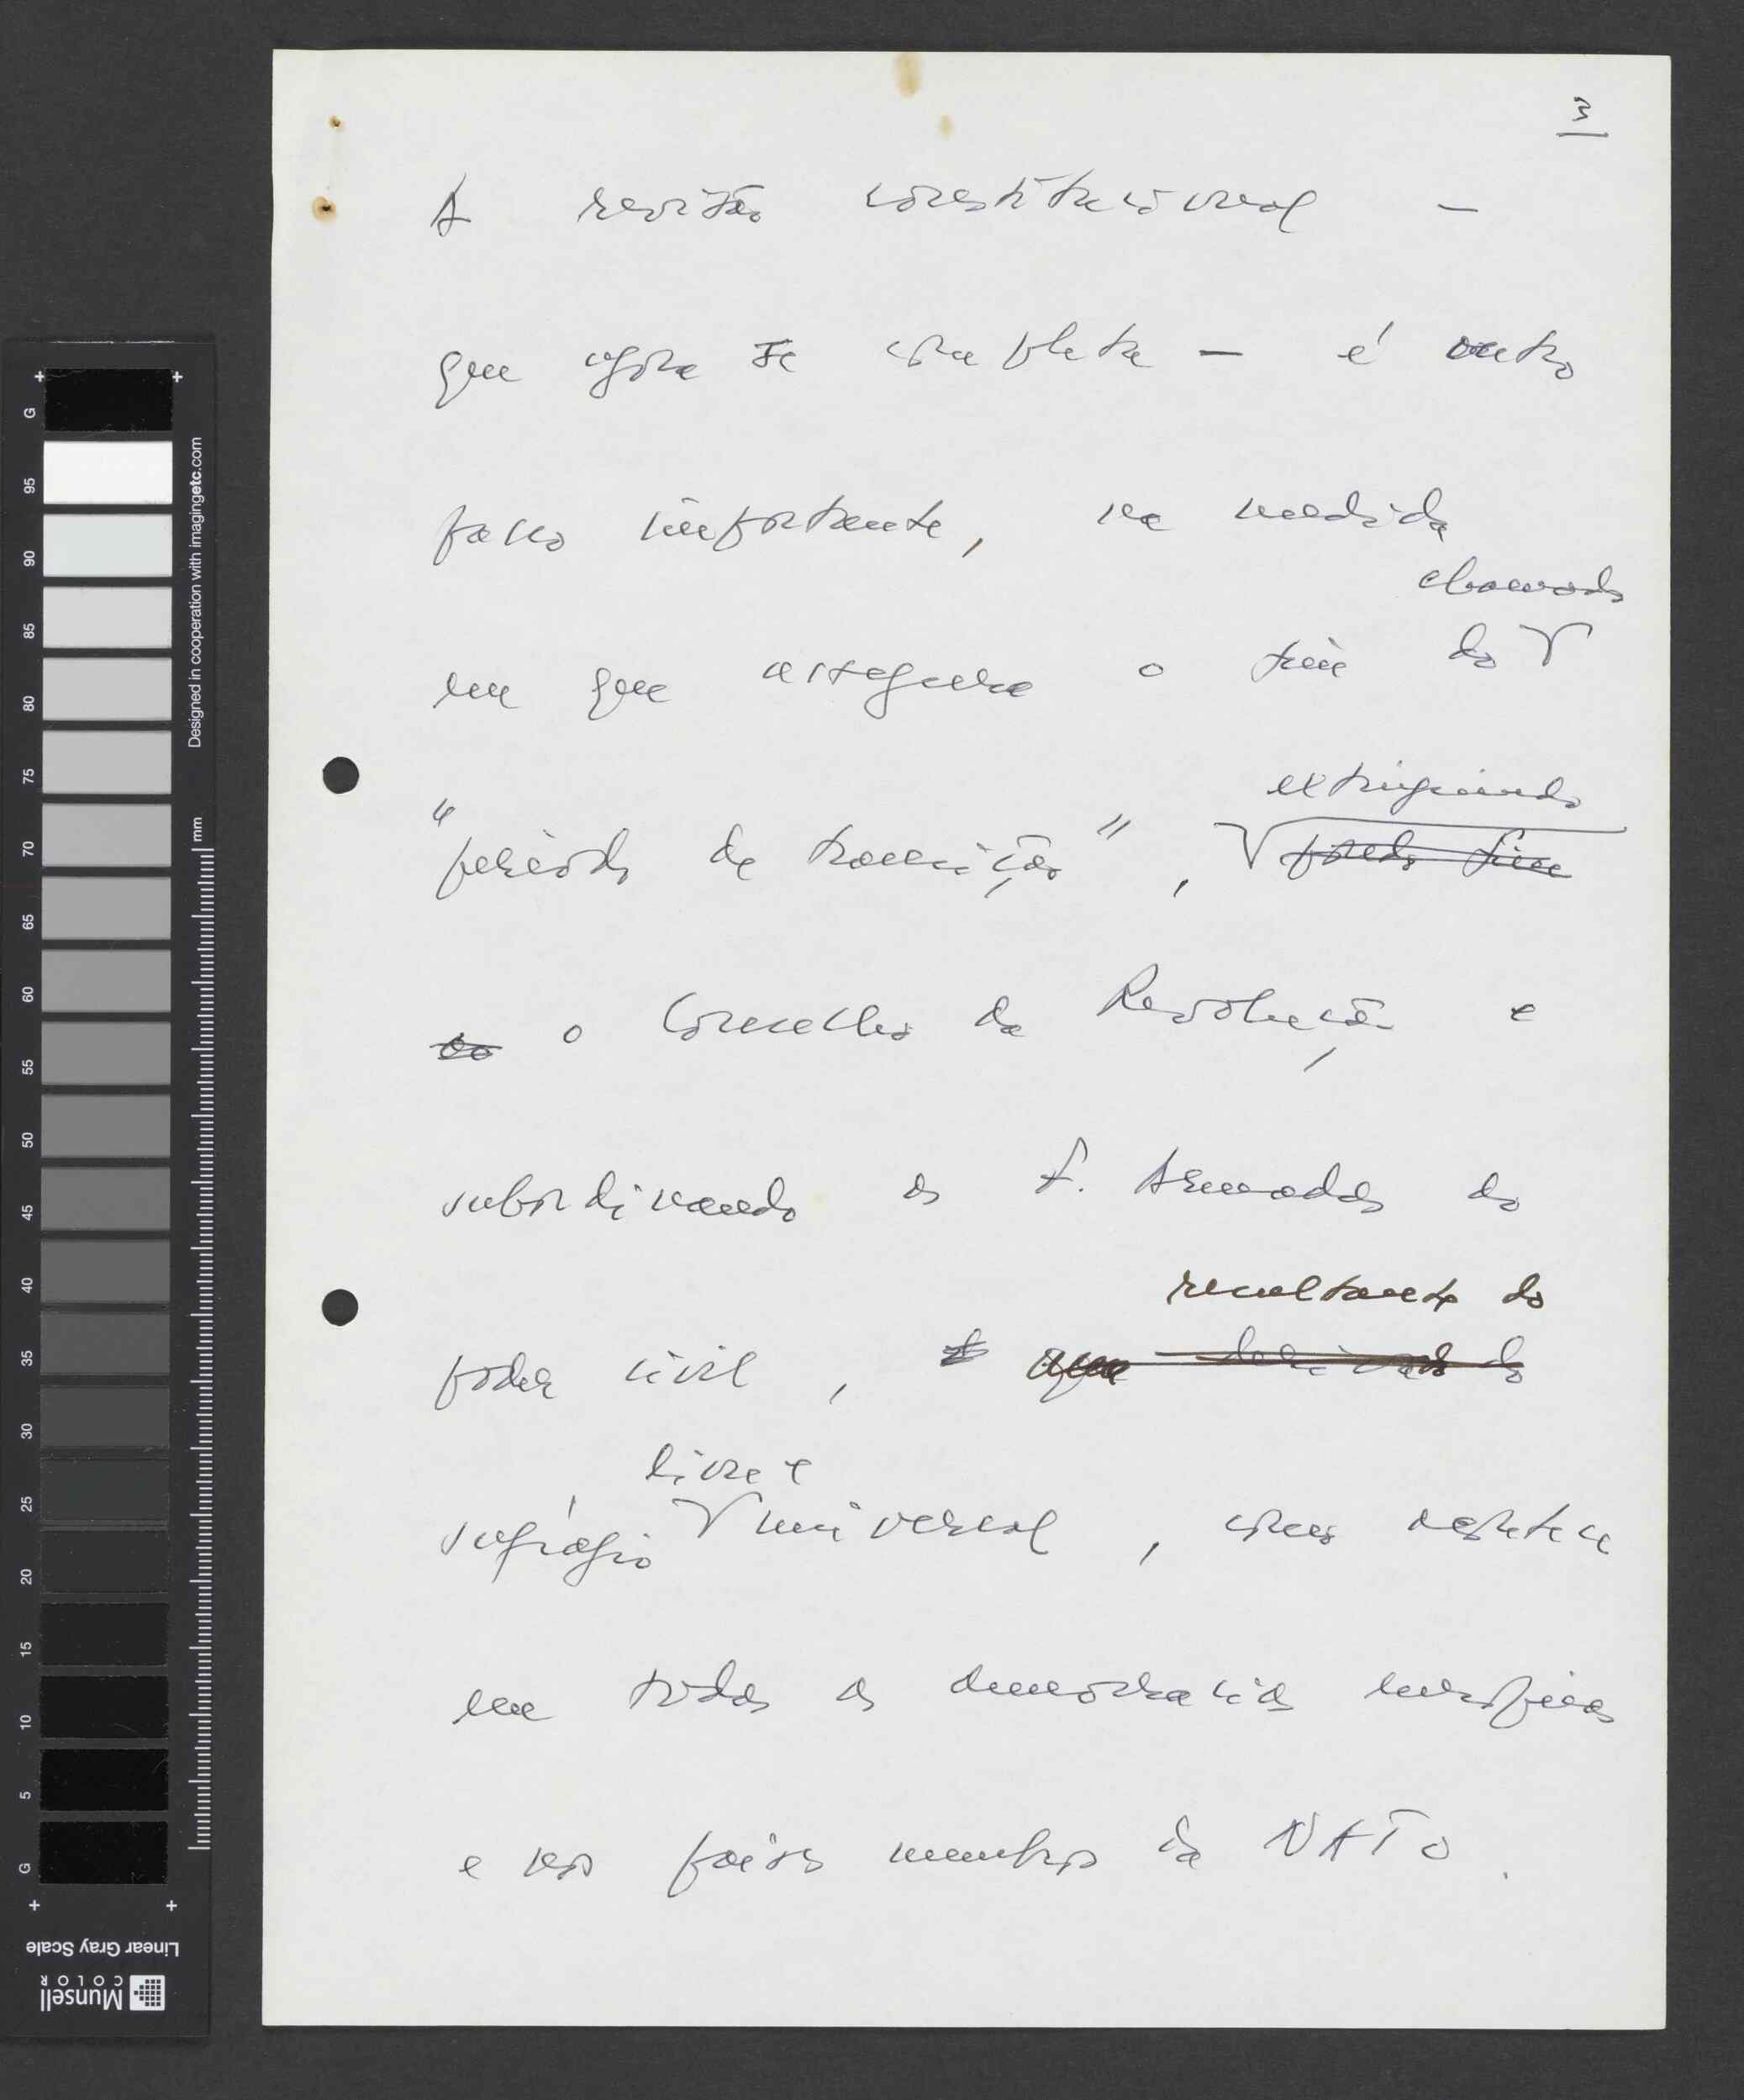 3
A revisão constitucional –
que agora se completa – é outro
passo importante, na medida
chamado
em que assegura o fim do
extinguindo
"período de transição", pondo fim
ao o Conselho da Revolução e
subordinando as F. Armadas ao
resultante do
poder civil, que derivado do
livre e
sufrágio universal, como acontece
em todas as democracias europeias
e nos países membros da NATO.
G
95
90
85
80
75
70
65
60
55
50
45
40
35
30
25
20
15
10
5
G
Designed in cooperation with imagingetc.com
mm
Linear Gray Scale
Munsell
COLOR